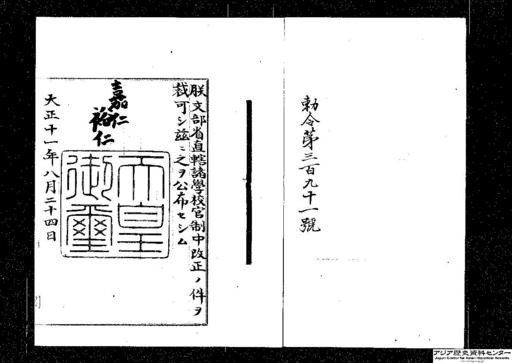 勅令第三百九十一號
朕文部省直轄諸學校官制中改正ノ件ヲ
裁可シ茲ニ之ヲ公布セシム
嘉仁
裕仁
天皇
御璽
大正十一年八月二十四日
アジア歴史資料センター
Japan Center for Asian Historical Records